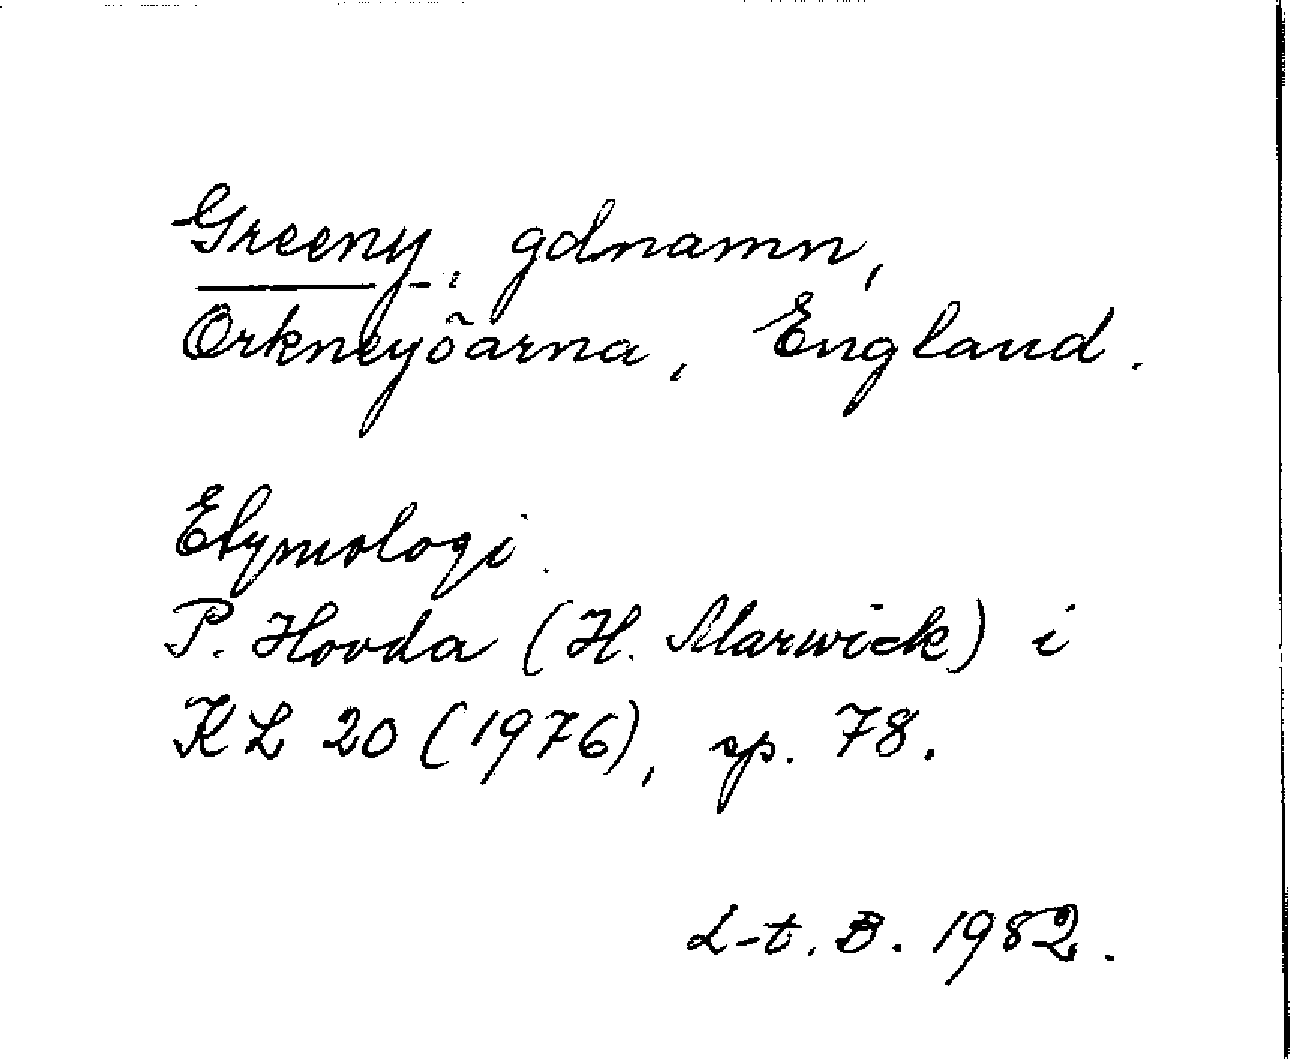 Greeny, gdnamn,
Orkneyöarna, England.
Etymologi.
P. Hovda (H. Marwick) i
KL 20 (1976), sp. 78.
L-t. B. 1982.